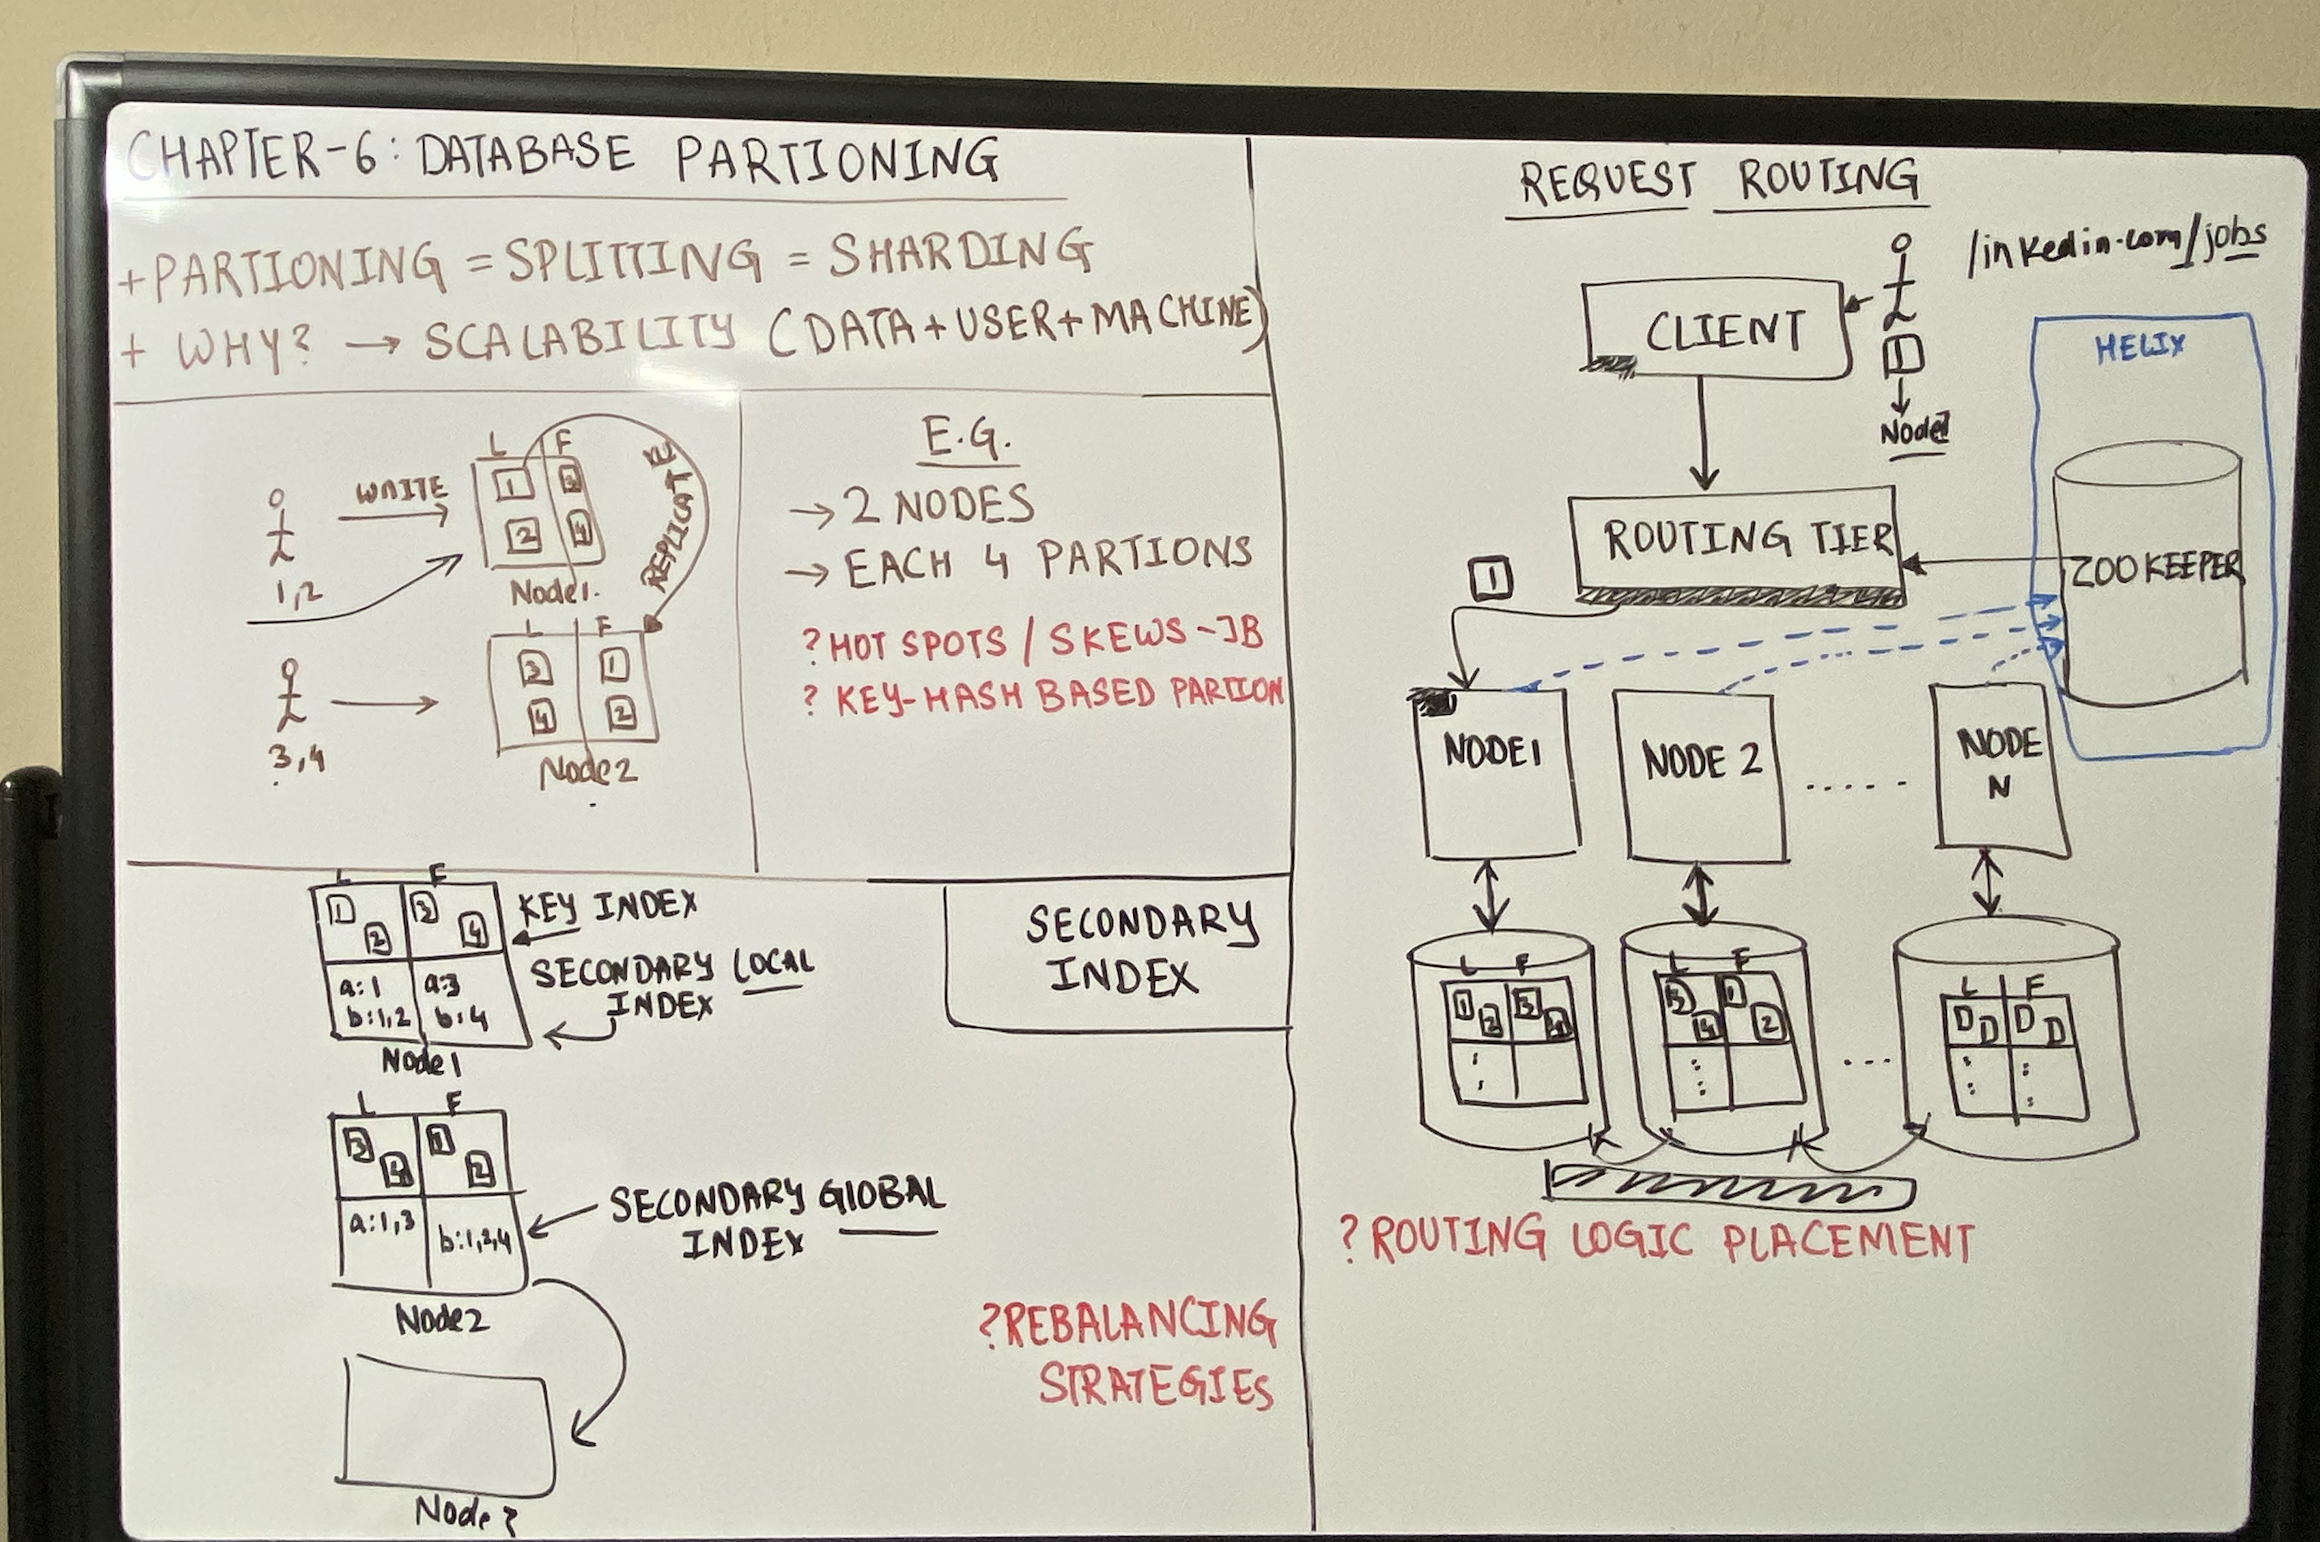 CHAPTER-6: DATABASE PARTIONING
+ PARTIONING = SPLITTING = SHARDING
+ WHY? → SCALABILITY (DATA+USER+MACHINE)
L F
WRITE
1
2 4
1,2
Node1.
REPLICATE
L F
3 1
4 2
3,4
Node2
E.G.
→ 2 NODES
→ EACH 4 PARTIONS
? HOT SPOTS / SKEWS
? KEY-HASH BASED PARTION
SECONDARY
INDEX
L F
1 2 3 4
KEY INDEX
a:1 a:3
b:1,2 b:4
SECONDARY LOCAL
INDEX
Node1
L F
3 4 1 2
a:1,3 b:1,2,4
SECONDARY GLOBAL
INDEX
Node2
Node
?REBALANCING
STRATEGIES
REQUEST ROUTING
linkedin.com/jobs
CLIENT
1
Node1
HELIX
ROUTING TIER
ZOOKEEPER
1
NODE1
NODE 2
.....
NODE
N
L F
1 2 3 4
L F
3 4 1 2
....
L F
D D D D
? ROUTING LOGIC PLACEMENT